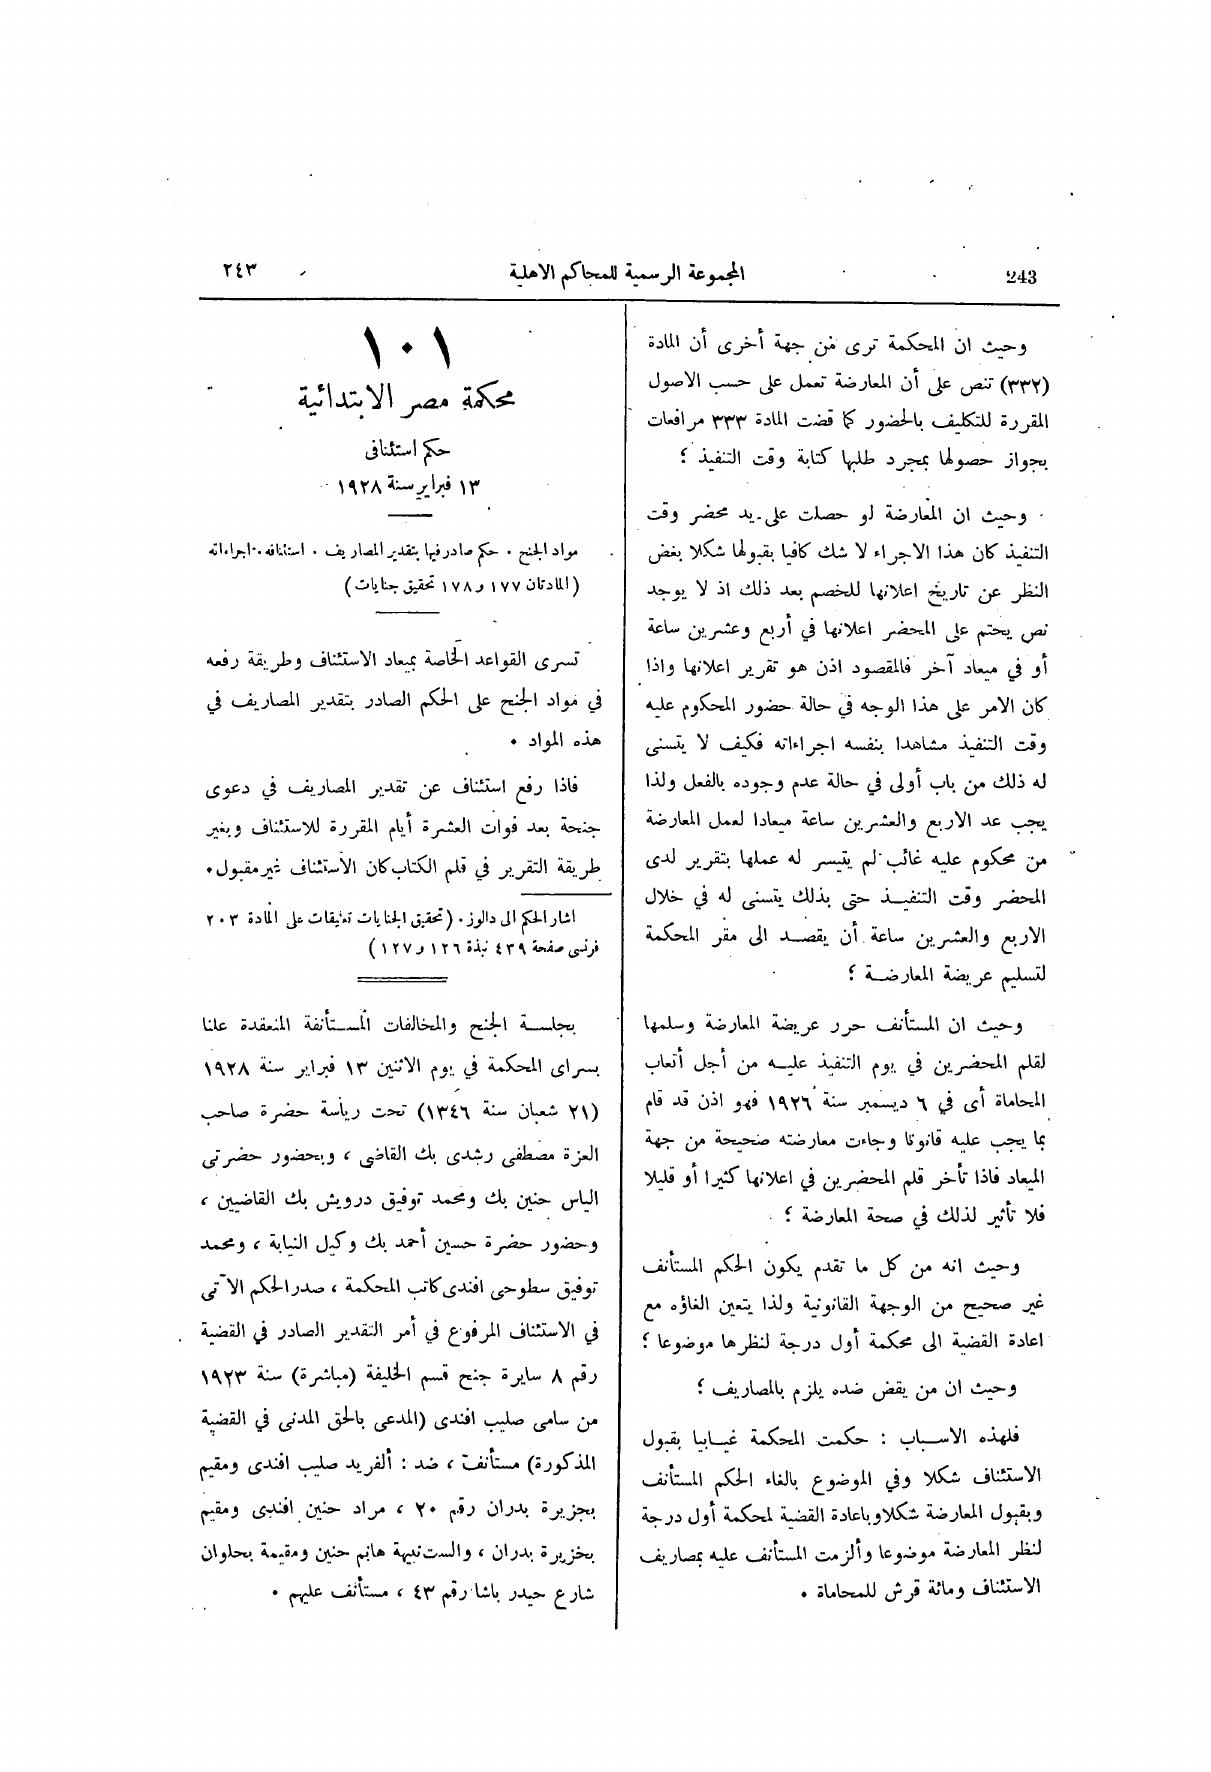 243
المجموعة الرسمية للمحاكم الاهلية
٢٤٣
وحيث ان المحكمة ترى من جهة أخرى أن المادة
(٣٣٢) تنص على أن المعارضة تعمل على حسب الاصول
المقررة للتكليف بالحضور كما قضت المادة ٣٣٣ مرافعات
بجواز حصولها بمجرد طلبها كتابة وقت التنفيذ ؛
وحيث ان المعارضة لو حصلت على يد محضر وقت
التنفيذ كان هذا الاجراء لا شك كافيا بقبولها شكلا بغض
النظر عن تاريخ اعلانها للخصم بعد ذلك اذ لا يوجد
نص يحتم على المحضر اعلانها في أربع وعشرين ساعة
أو في ميعاد آخر فالمقصود اذن هو تقرير اعلانها واذا
كان الامر على هذا الوجه في حالة حضور المحكوم عليه
وقت التنفيذ مشاهدا بنفسه اجراءاته فكيف لا يتسنى
له ذلك من باب أولى في حالة عدم وجوده بالفعل ولذا
يجب عد الاربع والعشرين ساعة ميعادا لعمل المعارضة
من محكوم عليه غائب لم يتيسر له عملها بتقرير لدى
المحضر وقت التنفيـذ حتى بذلك يتسنى له في خلال
الاربع والعشرين ساعة أن يقصـد الى مقر المحكمة
لتسليم عريضة المعارضـة ؛
وحيث ان المستأنف حرر عريضة المعارضة وسلمها
لقلم المحضرين في يوم التنفيذ عليـه من أجل أتعاب
المحاماة أى في ٦ ديسمبر سنة ١٩٢٦ فهو اذن قد قام
بما يجب عليه قانونا وجاءت معارضته صحيحة من جهة
الميعاد فاذا تأخر قلم المحضرين في اعلانها كثيرا أو قليلا
فلا تأثير لذلك في صحة المعارضة ؛
وحيث انه من كل ما تقدم يكون الحكم المستأنف
غير صحيح من الوجهة القانونية ولذا يتعين الغاؤه مع
اعادة القضية الى محكمة أول درجة لنظرها موضوعا ؛
وحيث ان من يقض ضده يلزم بالمصاريف ؛
فلهذه الاسـباب : حكمت المحكمة غيـابيا بقبول
الاستئناف شكلا وفي الموضوع بالغاء الحكم المستأنف
وبقبول المعارضة شكلا وباعادة القضية لمحكمة أول درجة
لنظر المعارضة موضوعا وألزمت المستأنف عليه بمصاريف
الاستئناف ومائة قرش للمحاماة .
١٠١
محكمة مصر الابتدائية
حكم استئنافى
١٣ فبراير سنة ١٩٢٨
مواد الجنح . حكم صادر فيها بتقدير المصاريف . استئنافه . اجراءاته
(المادتان ١٧٧ و١٧٨ تحقيق جنايات)
تسرى القواعد الخاصة بميعاد الاستئناف وطريقة رفعه
في مواد الجنح على الحكم الصادر بتقدير المصاريف في
هذه المواد .
فاذا رفع استئناف عن تقدير المصاريف في دعوى
جنحة بعد فوات العشرة أيام المقررة للاستئناف وبغير
طريقة التقرير في قلم الكتاب كان الاستئناف غير مقبول .
اشار الحكم الى دالوز . (تحقيق الجنايات تعليقات على المادة ٢٠٣
فرنسى صفحة ٤٣٩ نبذة ١٢٦ و١٢٧)
بجلسـة الجنح والمخالفات المسـتأنفة المنعقدة علنا
بسراى المحكمة في يوم الاثنين ١٣ فبراير سنة ١٩٢٨
(٢١ شعبان سنة ١٣٤٦) تحت رياسة حضرة صاحب
العزة مصطفى رشدى بك القاضى ، وبحضور حضرتى
الياس حنين بك ومحمد توفيق درويش بك القاضيين ،
وحضور حضرة حسين أحمد بك وكيل النيابة ، ومحمد
توفيق سطوحى افندى كاتب المحكمة ، صدر الحكم الآتى
في الاستئناف المرفوع في أمر التقدير الصادر في القضية
رقم ٨ سايرة جنح قسم الخليفة (مباشرة) سنة ١٩٢٣
من سامى صليب افندى (المدعى بالحق المدنى في القضية
المذكورة) مستأنف ، ضد : ألفريد صليب افندى ومقيم
بجزيرة بدران رقم ٢٠ ، مراد حنين افندى ومقيم
بخزيرة بدران ، والست نبيهة هانم حنين ومقيمة بحلوان
شارع حيدر باشا رقم ٤٣ ، مستأنف عليهم .